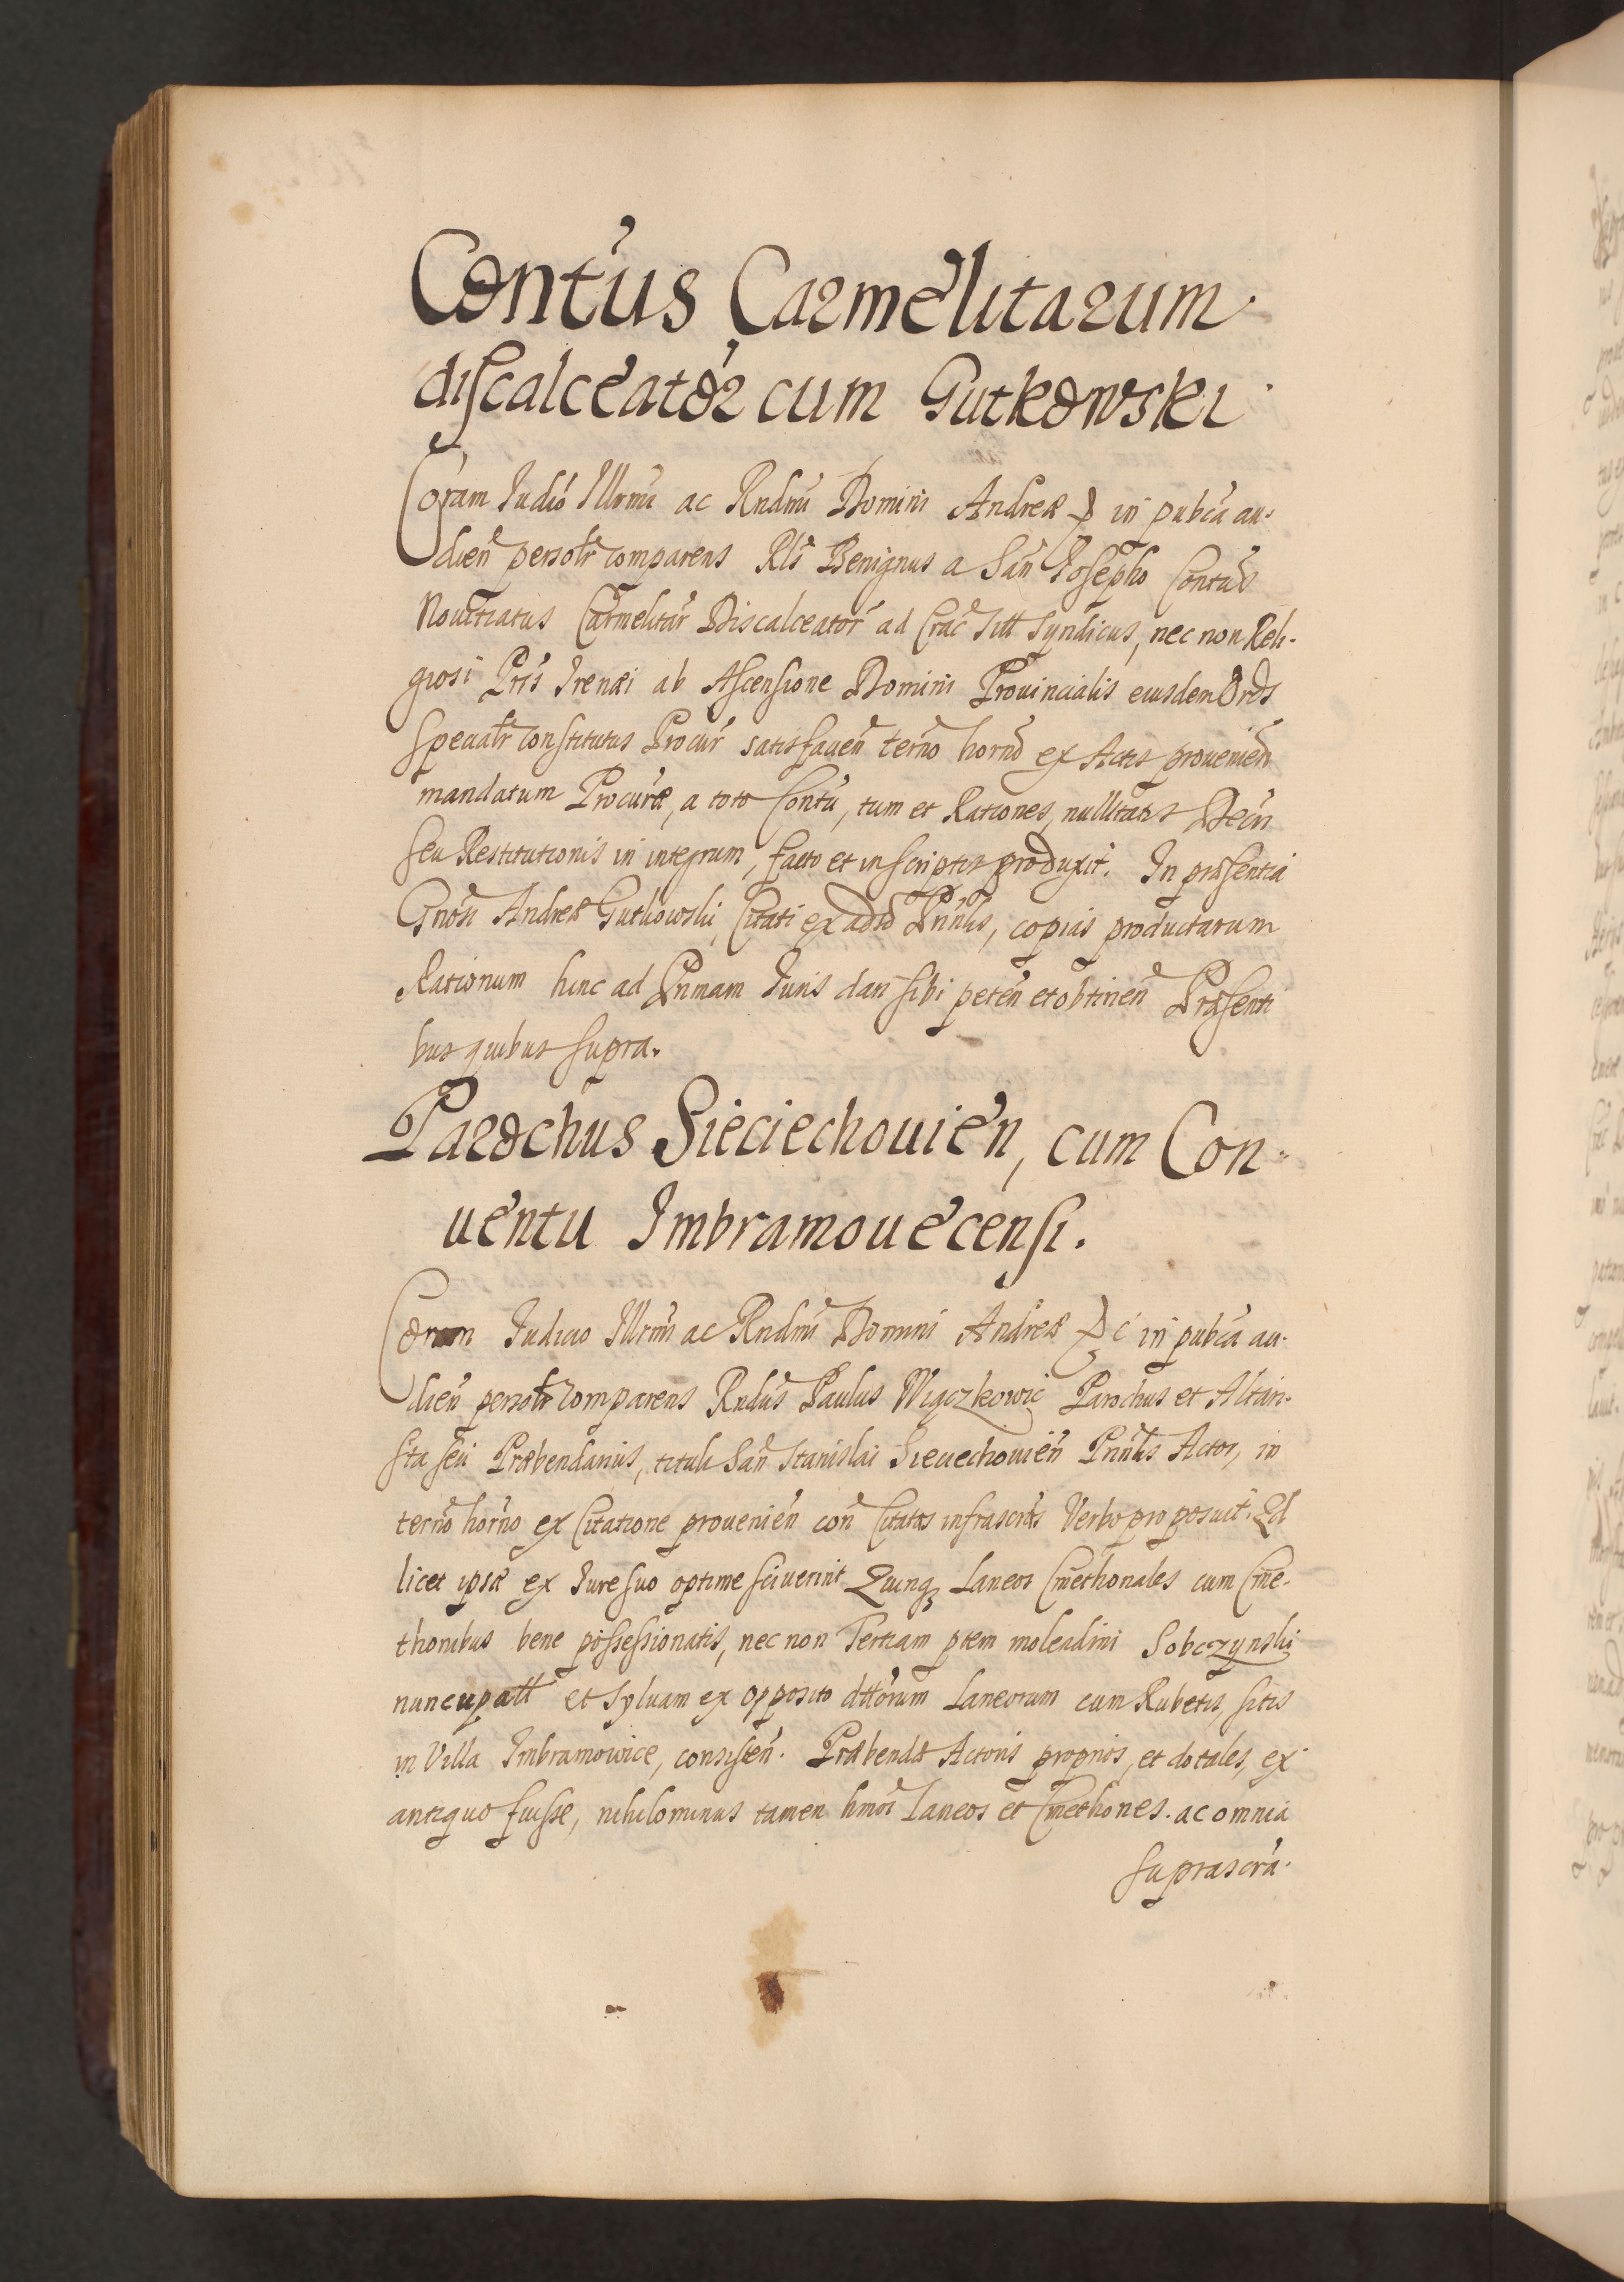 Contus Carmelitarum
discalceator cum Gutkowski
Coram Judió Illrmi ac Rndmi Domini Andreæ in pubca au-
dien persotr comparens Rls Benignus a San Josepho Contus
Novitiatus Carmelitar Discalceator ad Crac Sitt Syndicus, nec non Reli-
giosi Pris Irenæi ab Ascensione Domini Provincialis eiusdem Ords
speciatr constitutus Procur satisfacien terno horno ex Actis provenien
mandatum Procuræ, a toto Contu, tum et Rationes, nullitatis Decis
seu Restitutionis in integrum, facto et in scriptis produxit. In præsentia
Gnosi Andreæ Gutkowski, Citati ex adso Prinlis, copias productarum
Rationum hinc ad Prmam Juris dari sibi peten et obtinen Præsenti
bus quibus supra.
Parochus Sieciechovien, cum Con-
ventu Imbramovecensi.
Coram Judicio Illrmi ac Rndmi Domini Andreæ c in pubca au-
dien persotr comparens Rndus Paulus Wiączkowic Parochus et Altari-
sta seu Præbendarius, tituli San Stanislai Sieciechovien Prinlis Actor, in
terno horno ex Citatione provenien con Citatos infrascrtos Verbo proposuit. Qd
licet ipsæ ex Jure suo optime sciverint Quinq3 Laneos Cmethonales cum Cme-
thonibus bene possessionatis, nec non Tertiam ptem molendini Sobczynski
nuncupatt et Sylvam ex opposito dttorum Laneorum cum Rubetis, sitis
in Villa Imbramowice, consisten. Præbendæ Actoris proprios, et dotales, ex
antiquo fuisse, nihilominus tamen hmoi Laneos et Cmethones. ac omnia
suprascra.